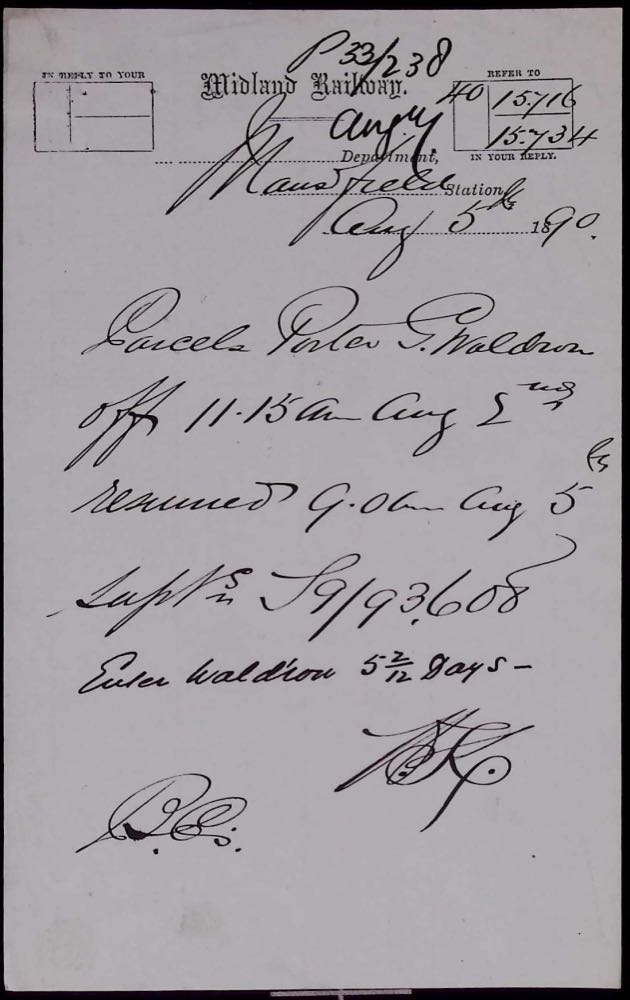 P 33/238
IN REPLY TO YOUR
Midland Railway.
REFER TO
40 15716
15734
Department,
IN YOUR REPLY.
Mansfield Station
Aug 5th 1890.
Parcels Porter G. Waldron
off 11.15 am Aug 2nd
resumed 9.0 am Aug 5th
Supt's S9/93,608
Enter Waldron 5 2/12 Days -